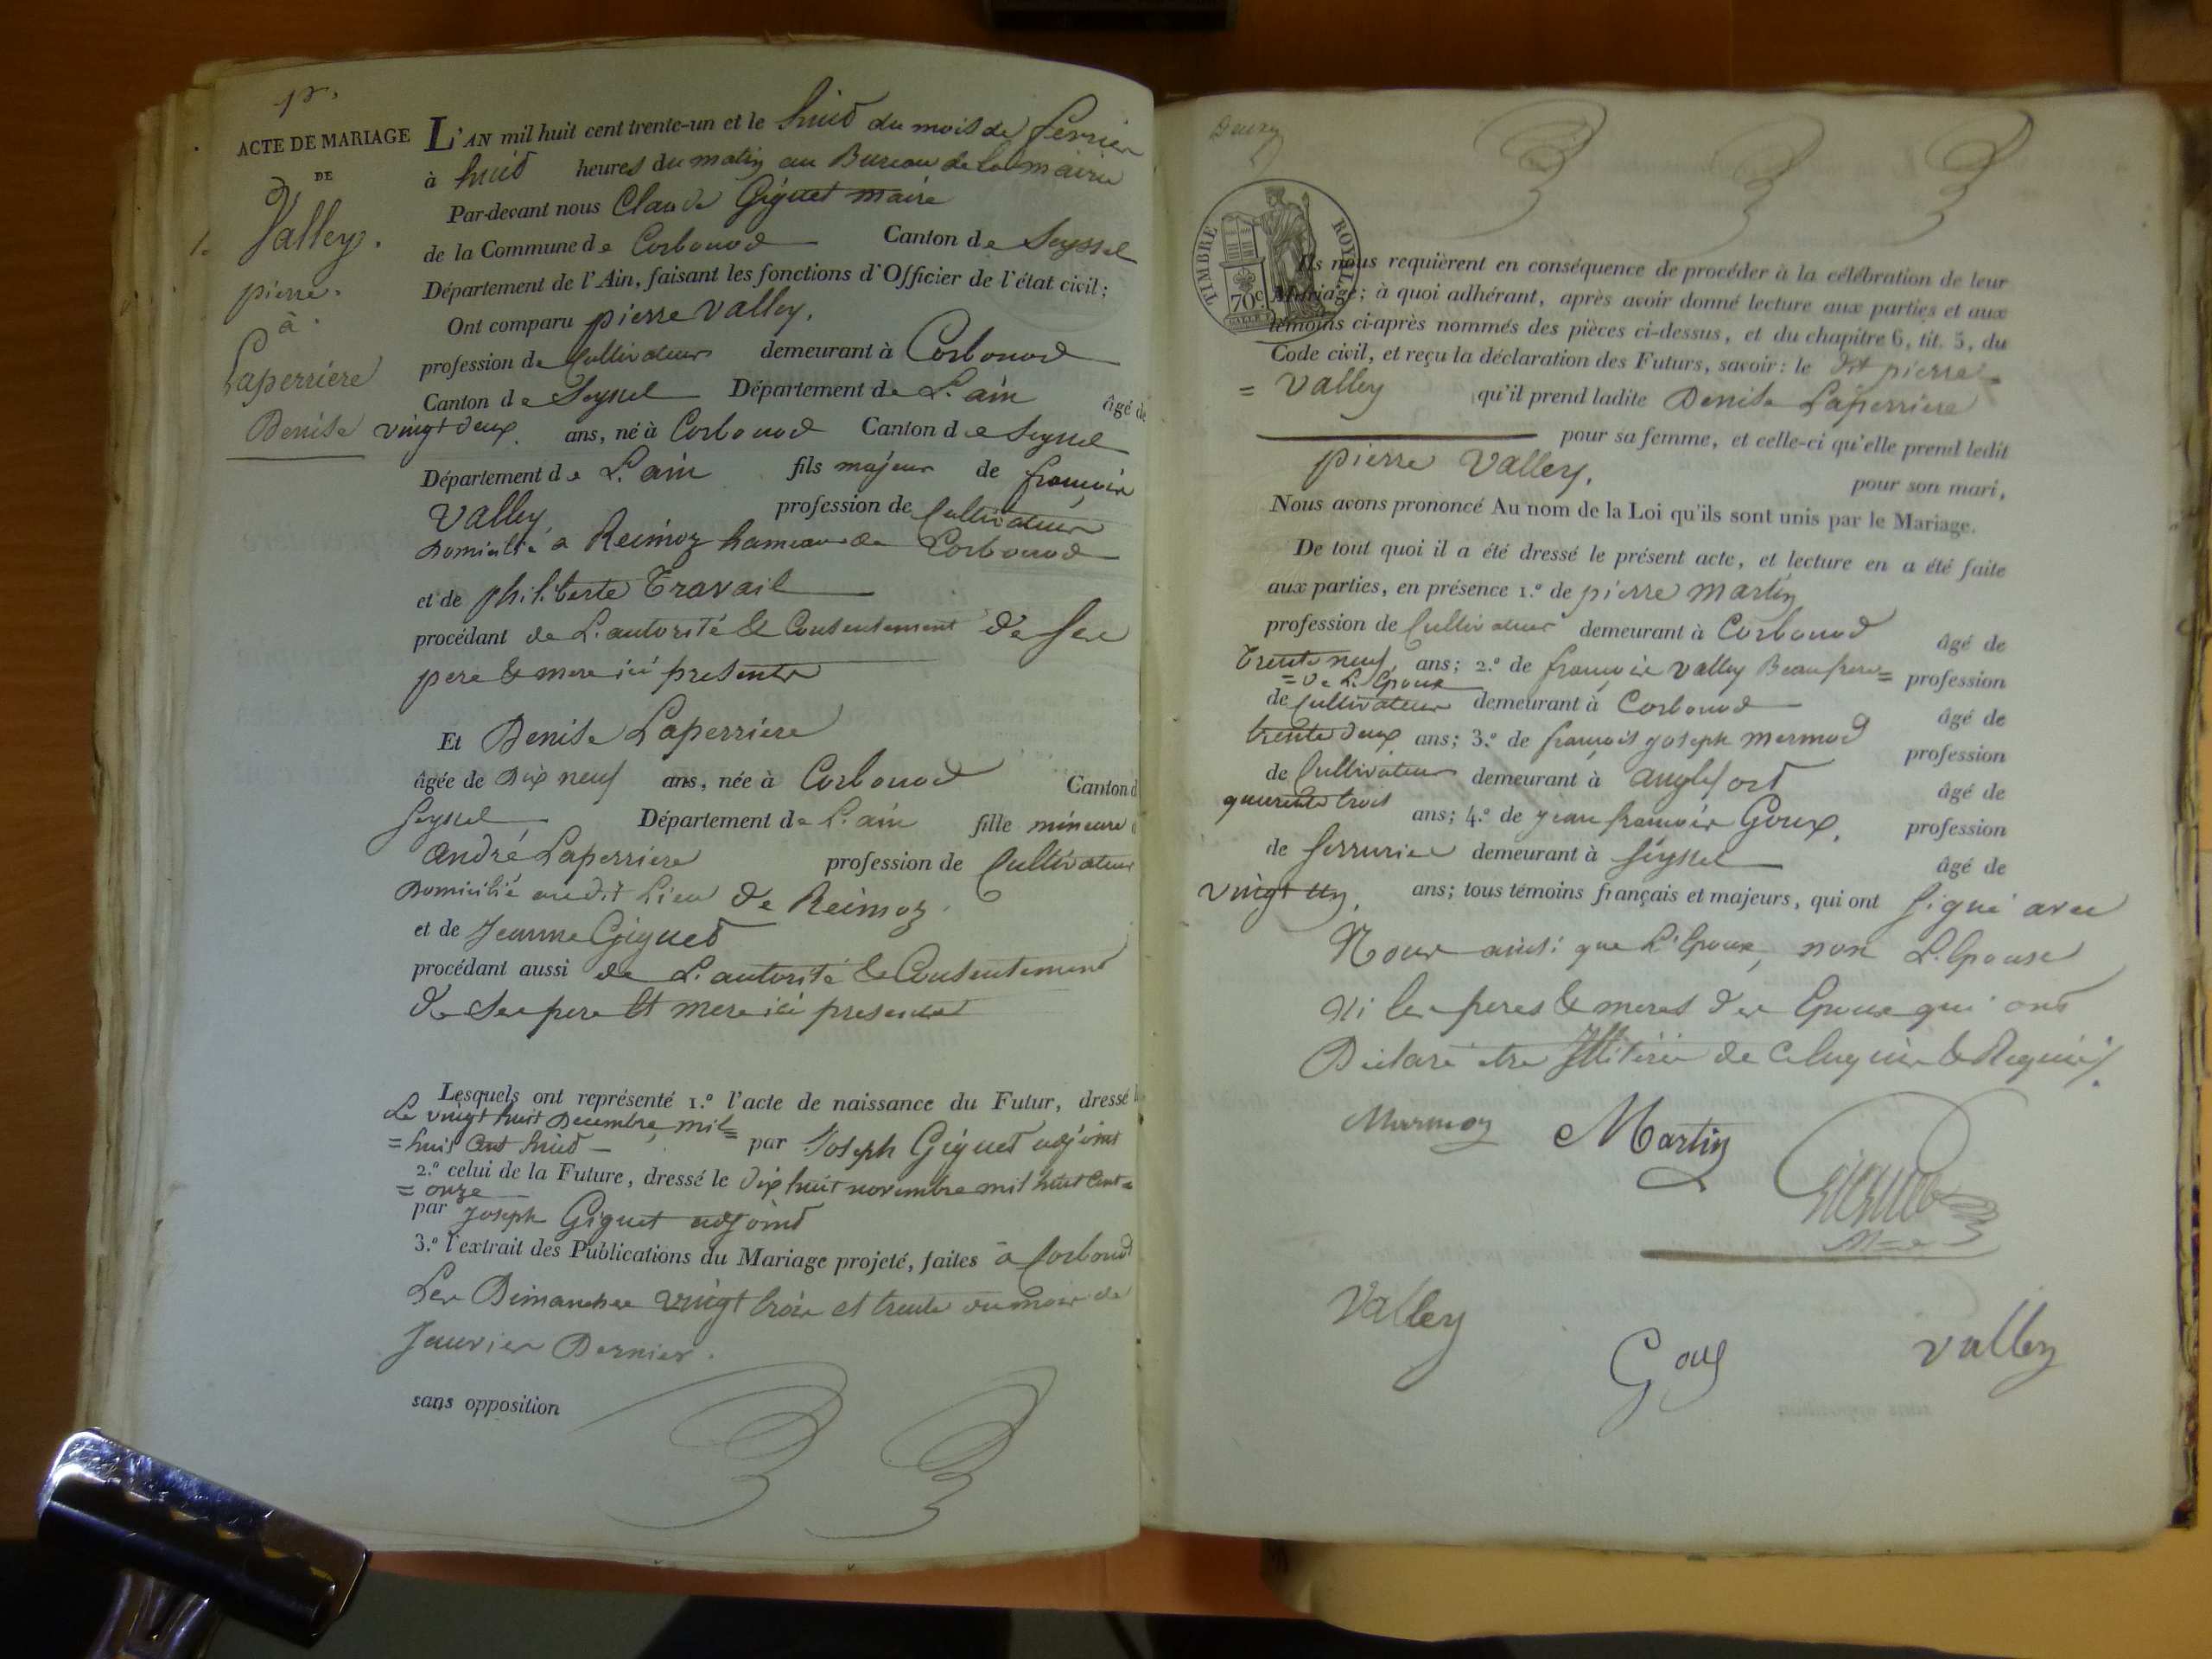 ACTE DE MARIAGE
DE
Valley.
pierre.
à
Laperriere
Denise
L'AN mil huit cent trente-un et le huid du mois de fevrier
à huid heures du matin au Bureau de la mairie
Par-devant nous Claude Giguet maire
de la Commune de Corbonod Canton de Seyssel
Département de l'Ain, faisant les fonctions d'Officier de l'état civil;
Ont comparu pierre Valley.
profession de Cultivateur demeurant à Corbonod
Canton de Seyssel Département de L'ain âgé de
vingt deux ans, né à Corbonod Canton de Seyssel
Département de L'ain fils majeur de francois
Valley profession de Cultivateur
Domicilié a Reimoz hameau de Corbonod
et de philiberte Travail
procédant de L'autorité & Consentement de ses
pere & mere ici presents
Et Denise Laperriere
âgée de Dix neuf ans, née à Corbonod Canton d
Seyssel Département de L'ain fille mineure
andré Laperriere profession de Cultivateur
Domicilié audit Lieu de Reimoz
et de Jeanne Gigued
procédant aussi de L'autorité & Consentement
de ses pere et mere ici presents
Lesquels ont représenté 1.º l'acte de naissance du Futur, dressé
Le vingt huit Decembre mil=
=huit Cent huid par Joseph Gigued adjoint
2.º celui de la Future, dressé le dix huit novembre mil huit Cent=
=onze
par Joseph Giguet adjoind
3.º l'extrait des Publications du Mariage projeté, faites à Corbonod
Les Dimanches vingt trois et trente du mois de
Janvier Dernier.
sans opposition
TIMBRE ROYAL
70c
Ils nous requièrent en conséquence de procéder à la célébration de leur
Mariage; à quoi adhérant, après avoir donné lecture aux parties et aux
témoins ci-après nommés des pièces ci-dessus, et du chapitre 6, tit. 5, du
Code civil, et reçu la déclaration des Futurs, savoir: le dit pierre=
=Valley qu'il prend ladite Denise Laperriere
pour sa femme, et celle-ci qu'elle prend ledit
pierre Valley, pour son mari,
Nous avons prononcé Au nom de la Loi qu'ils sont unis par le Mariage.
De tout quoi il a été dressé le présent acte, et lecture en a été faite
aux parties, en présence 1.º de pierre martin
profession de Cultivateur demeurant à Corbonod âgé de
Trente neuf ans; 2.º de francois valley Beaufrere= profession
=de L'Epoux
de Cultivateur demeurant à Corbonod âgé de
trente deux ans; 3.º de francois joseph mermod profession
de Cultivateur demeurant à anglefort âgé de
quarente trois ans; 4.º de jean francois Goux, profession
de serrurier demeurant à Seyssel âgé de
vingt un, ans; tous témoins français et majeurs, qui ont signé avec
Nous ainsi que L'Epoux, non L'Epouse
Ni les peres & meres des Epoux qui ont
Declaré etre Illiteres de ce Enquis & Requis.
Marmoz Martin Giguet
Valley Valley